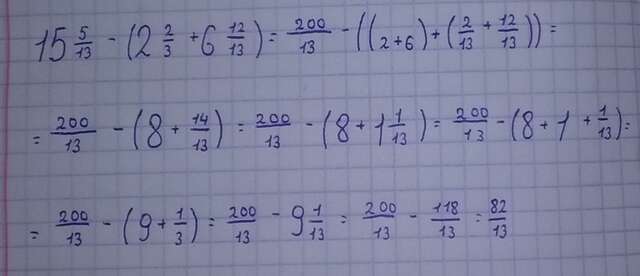 15 5/13 - (2 2/3 + 6 12/13) = 200/13 - ((2+6) + (2/13 + 12/13)) =
= 200/13 - (8 + 14/13) = 200/13 - (8 + 1 1/13) = 200/13 - (8 + 1 + 1/13) =
= 200/13 - (9 + 1/3) = 200/13 - 9 1/13 = 200/13 - 118/13 = 82/13